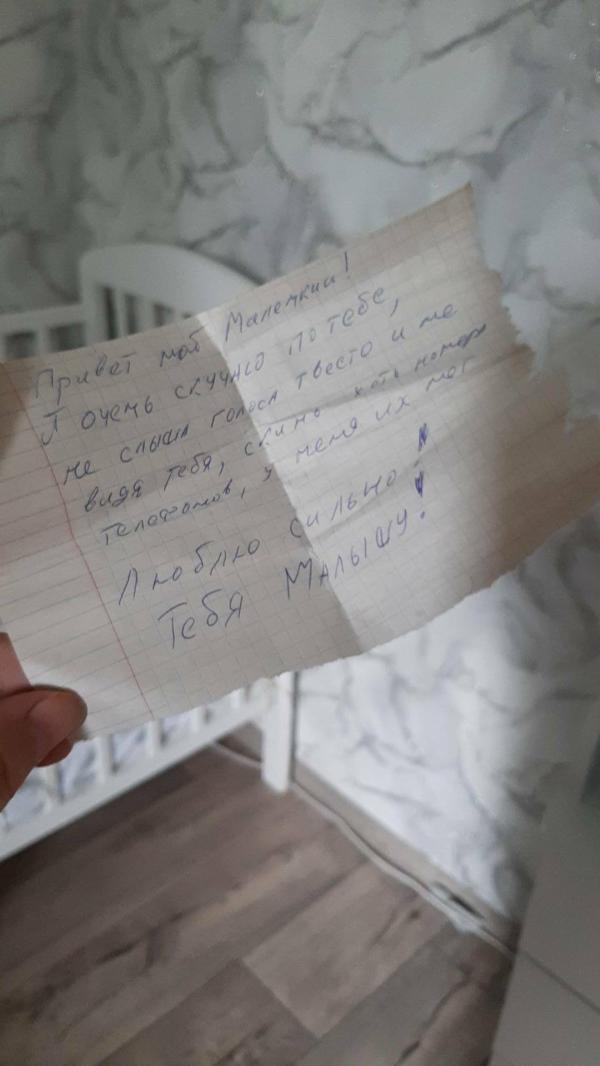 Привет мой Маленкий!
Я очень скучаю по тебе,
не слыша голоса твоего и не
видя тебя, скинь хоть номера
телефонов, у меня их нет
Люблю сильно!
Тебя Малышу!